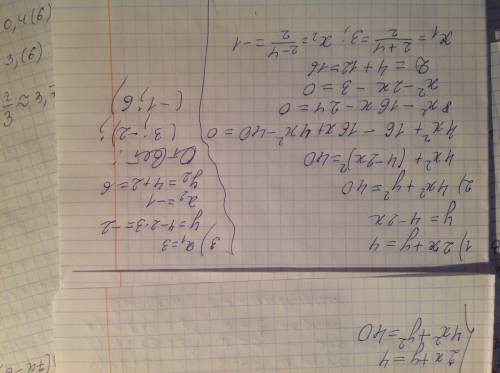 2x+y=4
4x²+y²=40
1) 2x+y=4
y=4-2x
2) 4x²+y²=40
4x²+(4-2x)²=40
4x²+16-16x+4x²-40=0
8x²-16x-24=0
x²-2x-3=0
D=4+12=16
x₁=2+4/2=3; x₂=2-4/2=-1
3) x₁=3
y=4-2·3=-2
x₂=-1
y₂=4+2=6
Ответ:
(3;-2);
(-1;6)
0,4(6)
3,(6)